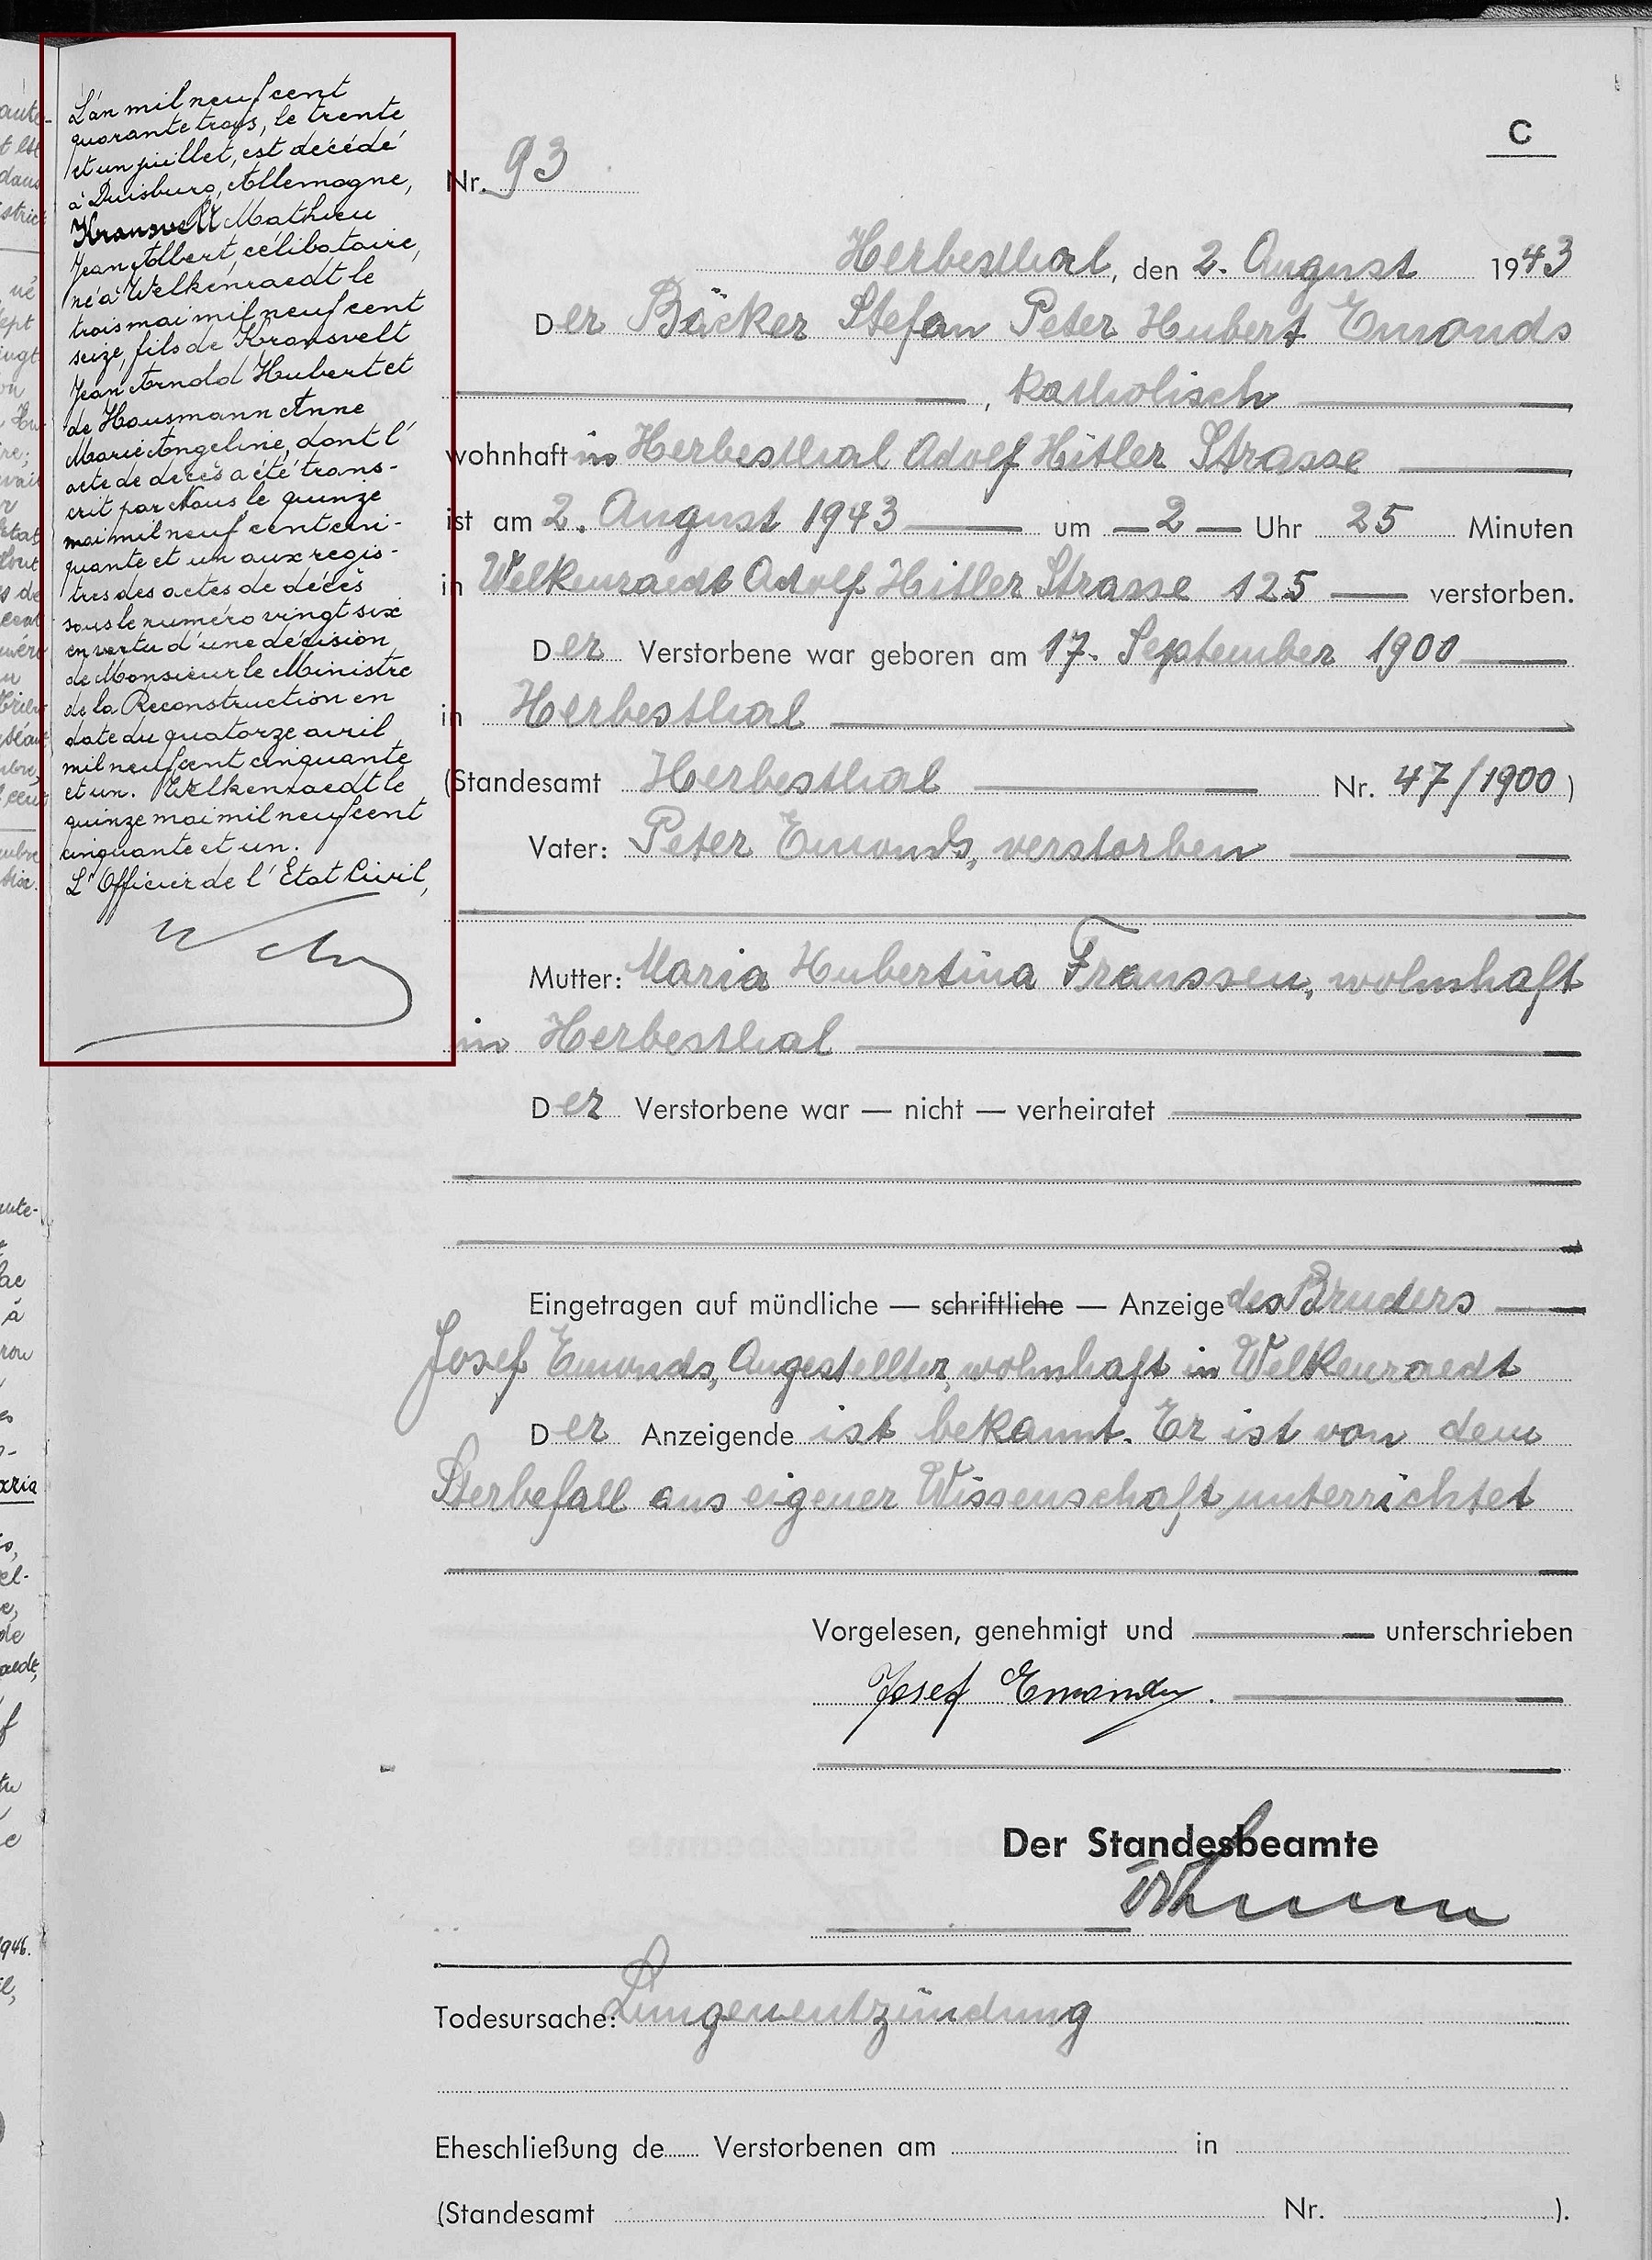 L'an mil neuf cent
quarante trois, le trente
et un juillet, est décédé
à Duisburg, Allemagne,
Kransvelt Mathieu
Jean Albert, célibataire,
né à Welkenraedt le
trois mai mil neuf cent
seize, fils de Kransvelt
Jean Arnold Hubert et
de Hausmann Anne
Marie Angeline, dont l'
acte de décès a été trans-
crit par Nous le quinze
mai mil neuf cent cin-
quante et un aux regis-
tres des actes de décès
sous le numéro vingt six
en vertu d'une décision
de Monsieur le Ministre
de la Reconstruction en
date du quatorze avril
mil neuf cent cinquante
et un. Welkenraedt le
quinze mai mil neuf cent
cinquante et un.
L'Officier de l'Etat Civil,
C
Nr. 93
Herbesthal, den 2. August 1943
Der Bäcker Stefan Peter Hubert Emonds
, katholisch
wohnhaft in Herbesthal Adolf Hitler Strasse
ist am 2. August 1943 um — 2 — Uhr 25 Minuten
in Welkenraedt Adolf Hitler Strasse 125 verstorben.
Der Verstorbene war geboren am 17. September 1900
in Herbesthal
(Standesamt Herbesthal Nr. 47/1900)
Vater: Peter Emonds, verstorben
Mutter: Maria Hubertina Franssen, wohnhaft
in Herbesthal
Der Verstorbene war — nicht — verheiratet
Eingetragen auf mündliche — schriftliche — Anzeige des Bruders
Josef Emonds, Angestellter, wohnhaft in Welkenraedt
Der Anzeigende ist bekannt. Er ist von dem
Sterbefall aus eigener Wissenschaft unterrichtet
Vorgelesen, genehmigt und unterschrieben
Josef Emonds.
Der Standesbeamte
Todesursache: Lungenentzündung
Eheschließung de Verstorbenen am in
(Standesamt Nr. ).